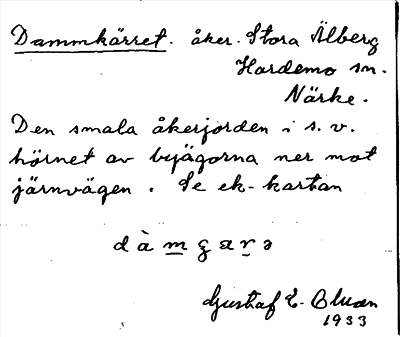 Dammkärret. åker. Stora Älberg
Hardemo sn.
Närke.
Den smala åkerjorden i s. v.
hörnet av byägorna ner mot
järnvägen. Se ek-kartan
Gustaf E.
1933